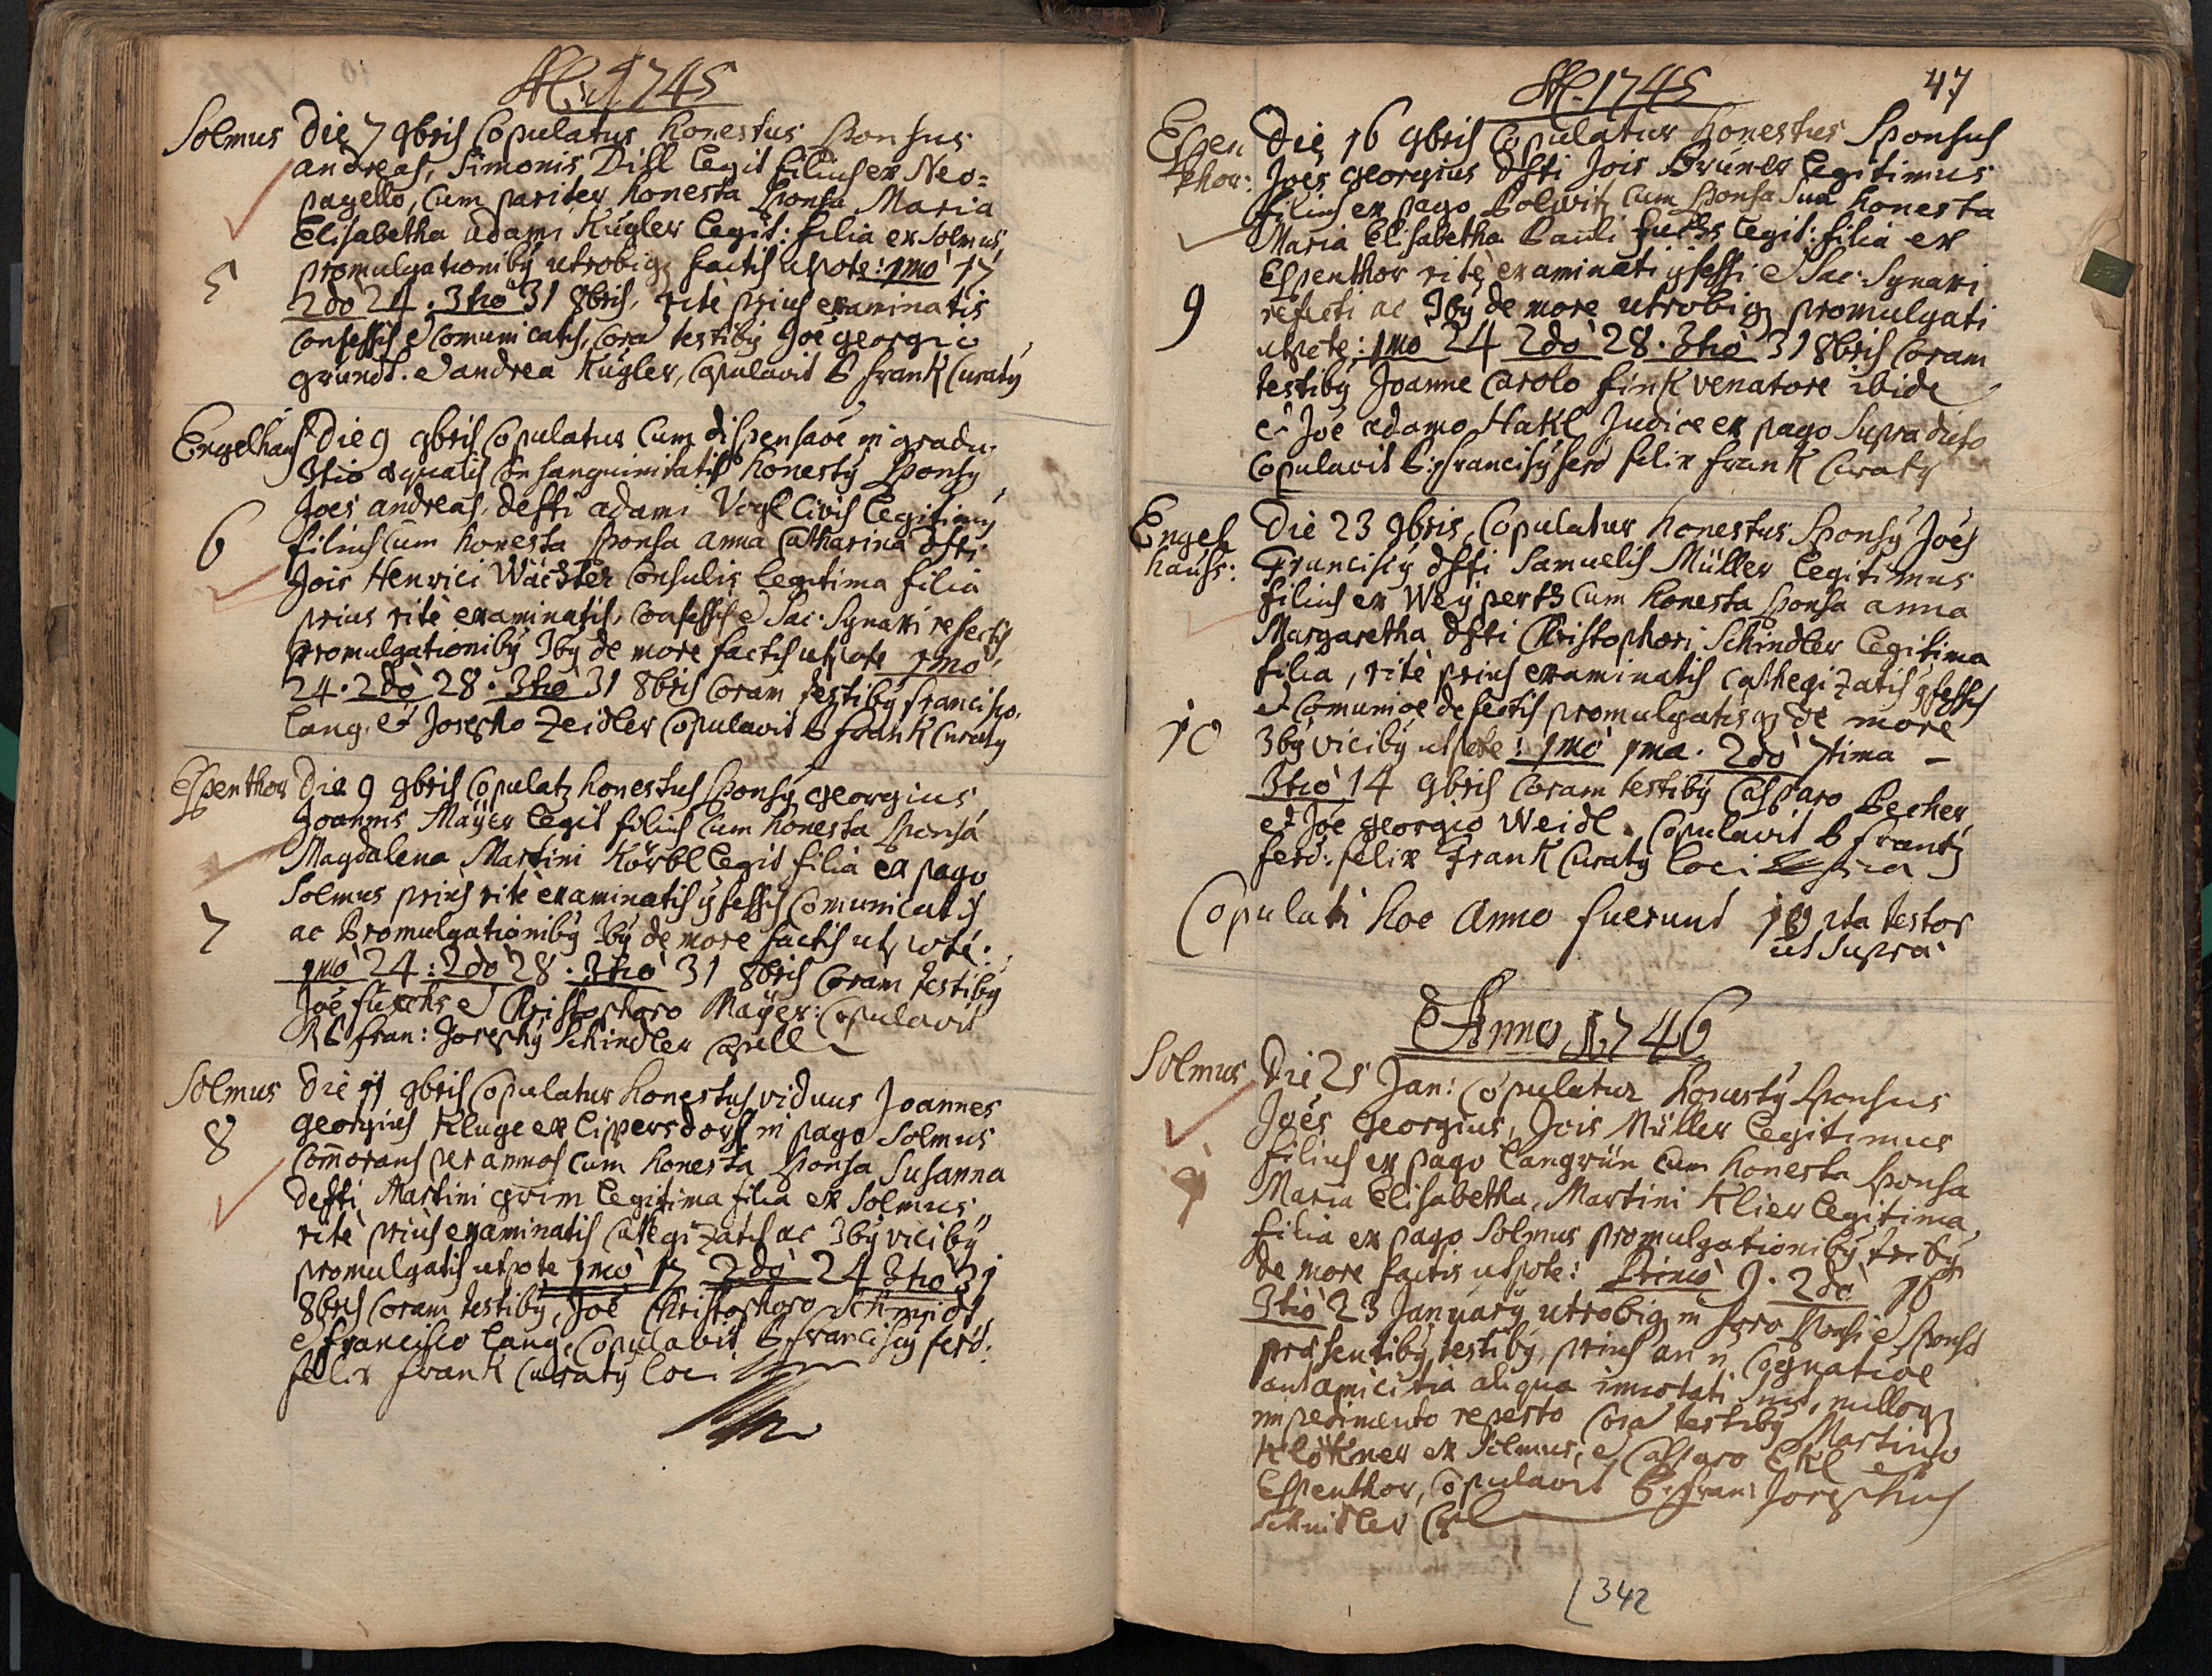 A. 1745
Solmus Die 7 9bris Copulatus honestus Sponsus
andreas, Simonis Dill legit filius ex Neo=
pagello, Cum pariter honesta Sponsa Maria
Elisabetha adami Kugler legit: filia ex Solmus,
5 promulgationiby utrobiq factis utpote: 1mo 17
2do 24. 3tio 31 8bris, rite prius examinatis
Confessis et Comunicatis, Cora testiby Joe georgio
grundt. et andrea Kugler, Copulavit P frank Curaty
Engelhaus Die 9 9bris Copulatus Cum dispensaoe in gradu
3tio aequalis Consanguinitatis honesty Sponsy
Joes andreas, defti adami Vogl Civis legitimy
6 filius Cum honesta Sponsa anna Catharina dfti
Jois Henrici Wächter Consulis legitima filia
prius rite examinatis, Confessis et Sac: Synaxi refectis
promulgationiby 3by de more factis utpote 1mo
24. 2do 28. 3tio 31 8bris Coram testiby francisco
lang, et Josepho Zeidler Copulavit P frank Curaty
Espenthor Die 9 9bris Copulaty honestus Sponsy georgius
Joannis Mäyer legit filius Cum honesta Sponsa
Magdalena Martini Körbl legit filia ex pago
Solmus prius rite examinatis 9fessis Comunicatis
7 ac Promulgationiby 3by de more factis utpote:
1mo 24: 2do 28. 3tio 31 8bris Coram testiby
Joe fuchs et Christophoro Mayer: Copulavit
P fran: Josephy Schindler Capell
Solmus Die 11 9bris Copulatur honestus viduus Joannes
8 georgius Kluge ex Lippersdorf in pago Solmus
Commorans per annos Cum honesta Sponsa Susanna
defti Martini grim legitima filia ex Solmus
rite prius examinatis Cathegizatis ac 3by viciby
promulgatis utpote 1mo 17 2do 24 3tio 31
8bris Coram testiby, Joe Christophoro Schmidt
et francisco lang, Copulavit P francisy ferd:
felix frank Curaty loci
A. 1745 47
Espen Die 16 9bris Copulatur honestus Sponsus
thor: Joes georgius dfti Jois Bruner legitimus
filius ex pago Polwitz Cum Sponsa Sua honesta
Maria Elisabetha Pauli fuchs legit: filia ex
Espenthor rite examinati 9fessi et Sac: Synaxi
9 refecti ac 3by de more utrobiq promulgati
utpote: 1mo 24 2do 28. 3tio 31 8bris Coram
testiby Joanne Carolo fink venatore ibide
et Joe adamo Hakl Judice ex pago Supra dicto
Copulavit P: francisy ferd felix frank Curaty
Engel Die 23 9bris, Copulatur honestus Sponsy Joes
hauss: Francisy dfti Samuelis Müller legitimus
filius ex Weyperth Cum honesta Sponsa anna
Margaretha dfti Christophori Schindler legitima
filia, rite prius examinatis Cathegizatis 9fessis
et Comunioe refectis promulgatis q de more
10 3by viciby utpote: 1mo 1ma. 2do 7tima –
3tio 14 9bris Coram testiby Casparo Becher
et Joe georgio Weidl. Copulavit P frantz
ferd: felix Frank Curaty loci
Copulati hoc anno fuerunt 10 ita testor
ut Supra
Anno 1746
Solmus Die 25 Jan: Copulatur honesty Sponsus
Joes Georgius, Jois Müller legitimus
1 filius ex pago langrün Cum honesta Sponsa
Maria Elisabetha, Martini Klier legitima
filia ex pago Solmus promulgationiby triby
de more factis utpote: Primo 9. 2do 16
3tio 23 January utrobiq in foro Sponsi et Sponsa
praesentiby testiby, prius an n Cognatioe
aut amicitia aliqua iuncti sint, nulloq
impedimento reperto Cora testiby Martino
Klökner ex Solmus, et Casparo Ekl e
Espenthor, Copulavit P: fran: Josephus
Schindler Cpl
342